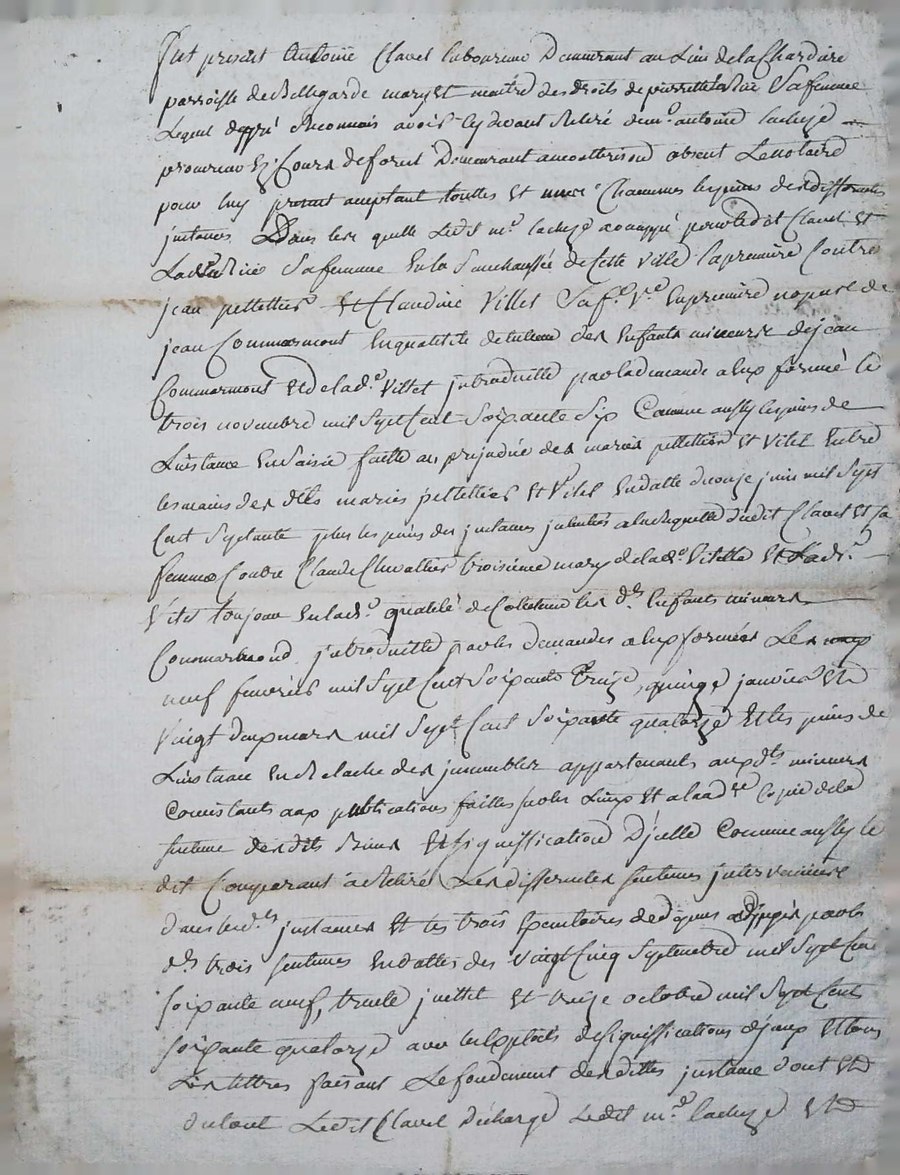 fut présent Antoine Clavel laboureur demeurant au lieu de la Chardire
parroisse de Bellegarde mary et maitre des droits de pierrette sa femme
Lequel de gré Reconnois avoir cy devant Retiré de me. antoine lacheze
procureur ez Cours de forest demeurant a montbrison absent Le notaire
pour luy present acceptant touttes et Chacunes les pieces des differentes
instances Dans les quelle Ledit me. lacheze a occuppé pour led it Clavel et
Sa femme En la Senechaussée de Cette ville La premiere Contre
jean pellettier Et Claudine Villet Sa fe. Ve. En premiere nopces de
jean Commarmont En qualité de tutrice des Enfants mineurs de jean
Commarmont Et de lad.e Villet introduitte par la demande a eux formé le
trois novembre mil Sept Cent Soixante Six Comme aussy les pieces de
L'instance En Saisie faitte au prejudice des mariés pellettier Et Vilet Entre
les mains des dits mariés pellettier Et Vilet En datte du onze juin mil Sept
Cent Septante plus les pieces des instances dudit Clavel et Sa
femme Contre Claude Chevallier troisieme mary de lad.e Vilette Et Lad.e
Vilet toujour En lad.e qualité de des d.ts Enfants mineurs
Conmarmond introduitte par les demandes a eux formées Les
neuf fevrier mil Sept Cent Soixante treize, quinze janvier Et
Vingt deux mars mil Sept Cent Soixante quatorze Et les pieces de
L'instance En Relache des immeubles appartenants aux d.ts mineurs
Consistants aux publications faittes pour Ceux Et a la Copie de la
sentence desdits Et signiffication D'icelle Comme aussy le
dit Comparant a Retiré Les differentes sentences intervenues
dans les d.tes instances Et les trois Executoires de depens adjugés par les
d.tes trois sentences En dattes des Vingt Cinq Septembre mil Sept Cent
soixante neuf, trente juillet Et treize octobre mil Sept Cent
soixante quatorze avec les Exploits de Signiffications d'iceux Et tous
Les tittres faisant Le fondement desdittes instance dont Et
du tout Ledit Clavel décharge Ledit me. lacheze Et